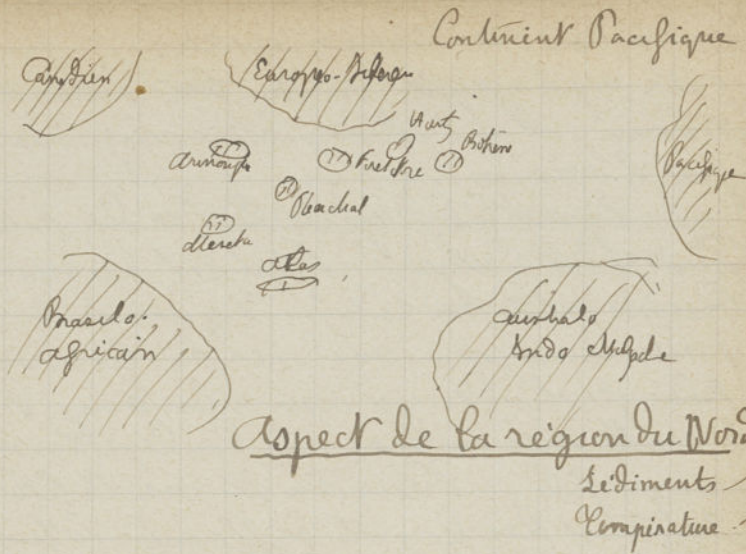 Continent Pacifique
Canadien
Europeo-
Hartz
Bohême
Armorique
Foret Nre
Pacifique
Plat chal
Meseta
Atlas
Brasilo-
africain
australo
Indo Malgache
Aspect de la région du Nord
Sédiments
Température